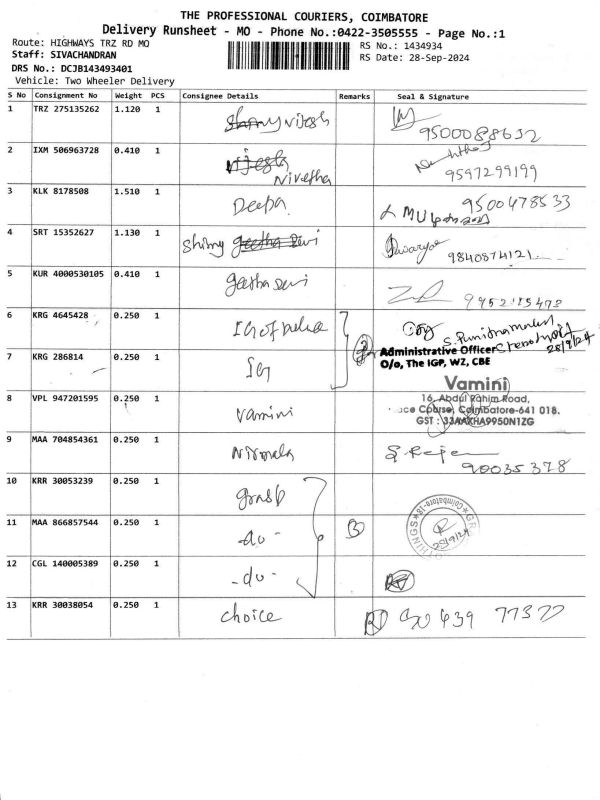 THE PROFESSIONAL COURIERS, COIMBATORE
Delivery Runsheet - MO - Phone No.:0422-3505555 - Page No.:1
Route: HIGHWAYS TRZ RD MO
RS No.: 1434934
Staff: SIVACHANDRAN
RS Date: 28-Sep-2024
DRS No.: DCJB143493401
Vehicle: Two Wheeler Delivery
S No Consignment No Weight PCS Consignee Details Remarks Seal & Signature
1 TRZ 275135262 1.120 1 Shimy Nijesh
9500088632
2 IXM 506963728 0.410 1 Nijesh
Nivetha 9597299199
3 KLK 8178508 1.510 1 Deepa 9500478533
4 SRT 15352627 1.130 1 Shimy Geetha Devi
9840874121
5 KUR 4000530105 0.410 1 Geetha Devi
6 KRG 4645428 0.250 1 IG of Police
28/9/24
Administrative Officer
O/o, The IGP, WZ, CBE
7 KRG 286814 0.250 1 IG
Vamini
16, Abdul Rahim Road,
ace Course, Coimbatore-641 018.
GST : 33AAKHA9950N1ZG
8 VPL 947201595 0.250 1 Vamini
9 MAA 704854361 0.250 1 Nirmala
90035 378
10 KRR 30053239 0.250 1 Grasp
11 MAA 866857544 0.250 1 -do- 3
Coimbatore-18
12 CGL 140005389 0.250 1 -do-
13 KRR 30038054 0.250 1 Choice